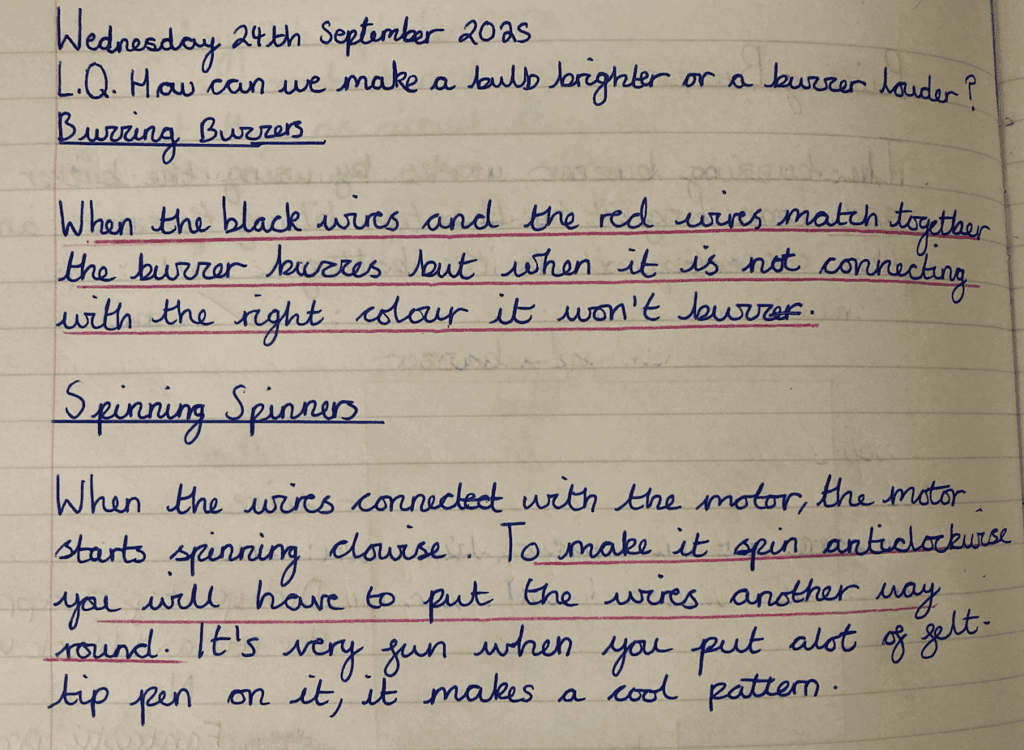 Wednesday 24th September 2025
L.Q. How can we make a bulb brighter or a buzzer louder?
Buzzing Buzzers
When the black wires and the red wires match together
the buzzer buzzes but when it is not connecting
with the right colour it won't buzzer.
Spinning Spinners
When the wires connected with the motor, the motor
starts spinning clowise. To make it spin anticlockwise
you will have to put the wires another way
round. It's very fun when you put alot of felt-
tip pen on it, it makes a cool pattern.